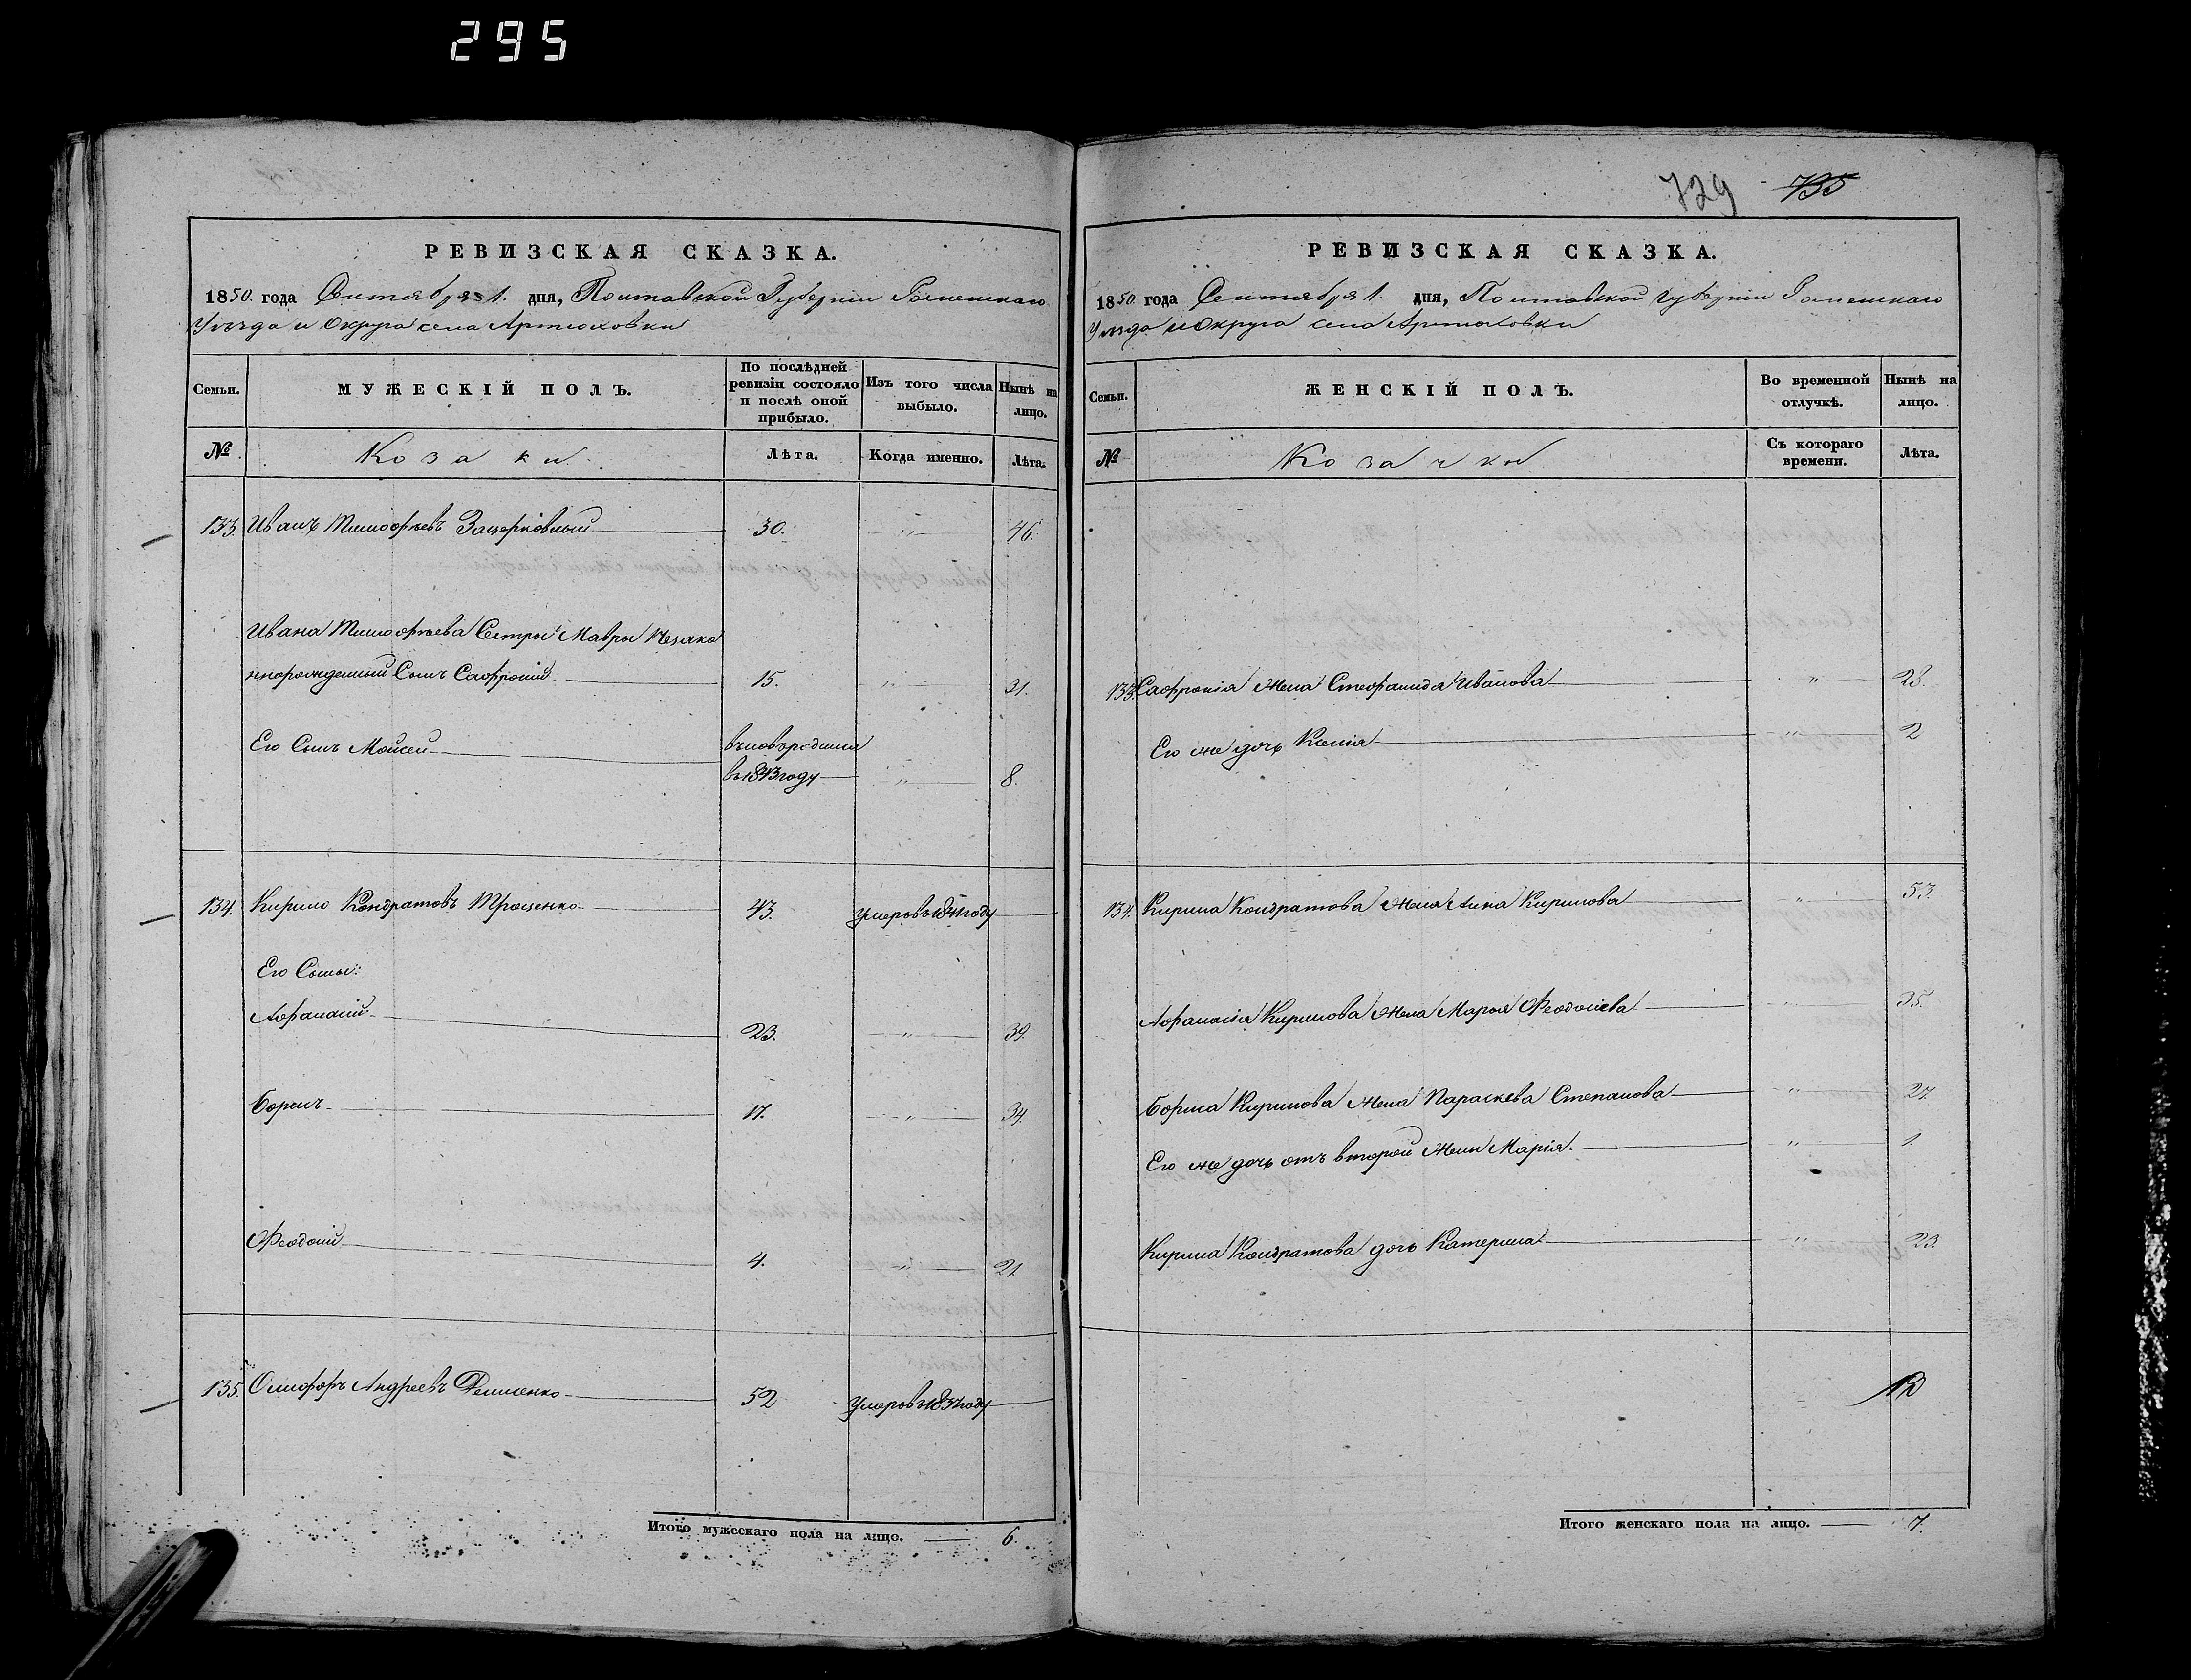 295
729 735
РЕВИЗСКАЯ СКАЗКА.
1850. года Сентября 1. дня, Полтавской Губерніи Роменскаго
Уѣзда и Округа села Артюховки
Семьи.
МУЖЕСКІЙ ПОЛЪ.
По послѣдней ревизіи состояло и послѣ оной прибыло.
Изъ того числа выбыло.
Нынѣ на лицо.
№
Козаки.
Лѣта.
Когда именно.
Лѣта.
133. Иванъ Тимофѣевъ Зацерковный 30. " 46.
Ивана Тимофѣева Сестры Мавры Незако
ннорожденный Сынъ Сафроній 15. " 31.
Его Сынъ Моисей
вновьродился
въ 1843 году " 8.
134. Кирило Кондратовъ Троценко 43. умеръ въ 1841 году
Его Сыны:
Афанасій 23. " 39.
Борисъ 17. " 34.
Феодосій 4. " 21.
135. Олифоръ Андреевъ 52 умеръ въ году
Итого мужескаго пола на лицо. 6.
РЕВИЗСКАЯ СКАЗКА.
1850. года Сентября 1. дня, Полтавской Губерніи Роменскаго
Уѣзда и Округа села Артюховки
Семьи.
ЖЕНСКІЙ ПОЛЪ.
Во временной отлучкѣ.
Нынѣ на лицо.
№
Козачки
Съ котораго времени.
Лѣта.
133. Сафронія жена Стефанида Иванова " 28.
Его же дочь Ксенія " 2
134. Кирила Кондратова жена Анна Кирилова " 53.
Афанасія Кирилова жена Марья Феодосіева " 35.
Бориса Кирилова жена Параскева Степанова " 27.
Его же дочь отъ второй жены Марія. " 1.
Кирила Кондратова дочь Катерина " 23.
Итого женскаго пола на лицо. 7.